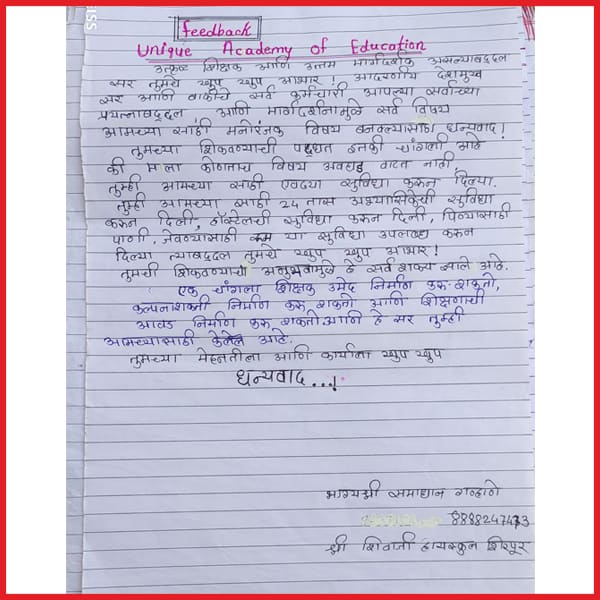 feedback
Unique Academy of Education
उत्कृष्ट शिक्षक आणि उत्तम मार्गदर्शक असल्याबद्दल
सर तुमचे खुप खुप आभार! आदरणीय देशमुख
सर आणि बाकीचे सर्व कर्मचारी आपल्या सर्वांच्या
प्रयत्नाबद्दल, आणि मार्गदर्शनामुळे सर्व विषय
आमच्या साठी मनोरंजक विषय बनवल्यासाठी धन्यवाद!
तुमच्या शिकवण्याची पद्धत इतकी चांगली आहे
की मला कोणताच विषय अवघड वाटत नाही,
तुम्ही आमच्या साठी एवढ्या सुविधा करून दिल्या.
तुम्ही आमच्या साठी 24 तास अभ्यासिकेची सुविधा
करून दिली, हॉस्टेलची सुविधा करून दिली, पिण्यासाठी
पाणी, जेवण्यासाठी रूम या सुविधा उपलब्ध करून
दिल्या त्याबद्दल तुमचे खुप खुप आभार!
तुमची शिकवण्याचा अनुभवामुळे हे सर्व शक्य झाले आहे.
एक चांगला शिक्षक उमेद निर्माण करू शकतो,
कल्पनाशक्ती निर्माण करू शकतो आणि शिक्षणाची
आवड निर्माण करू शकतो.आणि हे सर तुम्ही
आमच्यासाठी केलेल आहे.
तुमच्या मेहनतीला आणि कार्याला खुप खुप
धन्यवाद...!
भाग्यश्री समाधान गव्हाणे
8888247473
श्री शिवाजी हायस्कुल शिरपूर